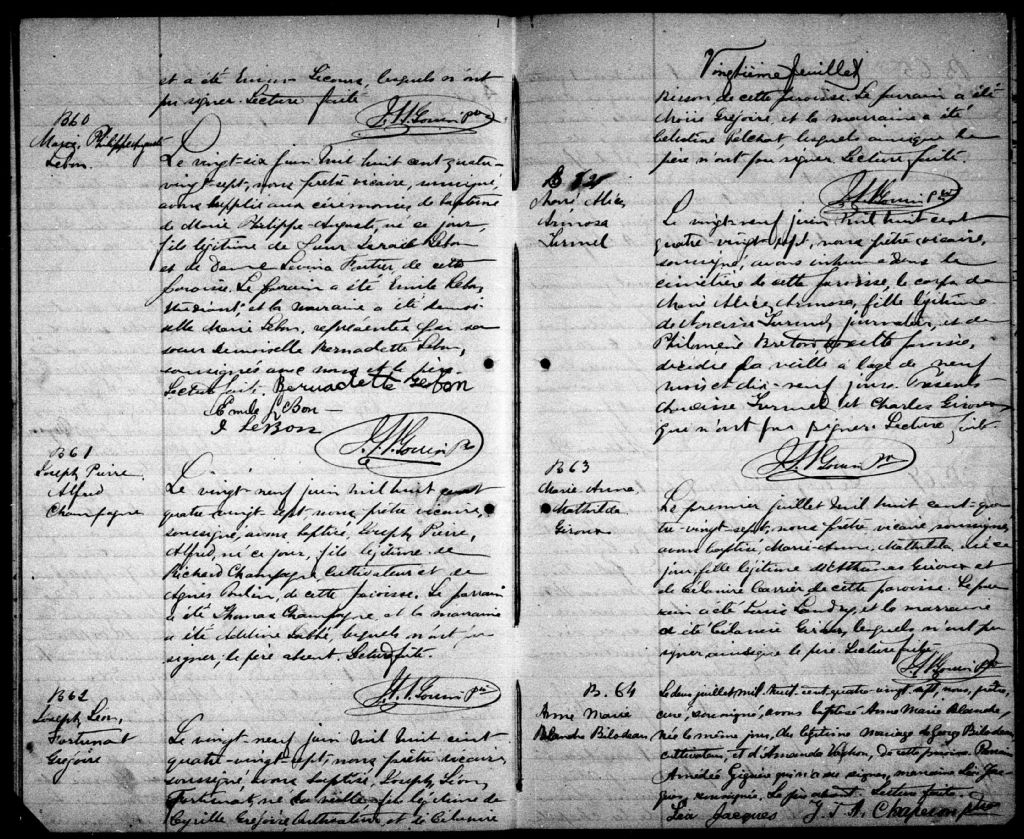 et a été Lecours, lesquels n'ont
pu signer. Lecture faite.
B60
Marie, Philippe Auguste
Lebon.
Le vingt-six juin mil huit cent quatre-
vingt-sept, nous prêtre vicaire, soussigné,
avons suppléé aux cérémonies de baptême
de Marie Philippe-Auguste, né ce jour,
fils légitime de Lebon
et de Dame Fortier de cette
paroisse. Le parrain a été Emile Lebon,
Etudiant, et la marraine a été demoi-
selle Marie Lebon, représentée par sa
soeur demoiselle Bernadette Lebon,
soussignés avec nous et le père.
Lecture faite. Bernadette Lebon
Emile LeBon
J LeBon
J. A. Gouin Ptre
B61
Joseph Pierre
Alfred
Champagne
Le vingt-neuf juin mil huit cent
quatre-vingt-sept nous prêtre vicaire,
soussigné, avons baptisé, Joseph Pierre,
Alfred, né ce jour, fils légitime de
Richard Champagne, cultivateur et de
Agnès Poulin, de cette paroisse. Le parrain
a été Thomas Champagne et la marraine
a été Adeline Labbé, lesquels n'ont pu
signer, le père absent. Lecture faite.
B62
Joseph, Léon,
Fortunat
Grégoire
Le vingt-neuf juin mil huit cent
quatre-vingt-sept, nous prêtre vicaire
soussigné, avons baptisé, Joseph, Léon,
Fortunat, né la veille, fils légitime de
Cyrille Grégoire, cultivateur, et de Célanire
Vingtième feuillet
Bisson de cette paroisse. Le parrain a été
Moïse Grégoire, et la marraine a été
Célestine Pelchat, lesquels ainsi que le
père n'ont pu signer. Lecture faite.
Marie Alice
Armosa
Turmel
Le vingt-neuf juin mil huit cent
quatre-vingt-sept, nous prêtre vicaire,
soussigné, avons inhumé dans le
cimetière de cette paroisse, le corps de
Marie Alice Armosa, fille légitime
de Narcisse Turmel, journalier, et de
Philomène Breton de cette paroisse,
décédée la veille à l'age de neuf
mois et dix-neuf jours. Présents
Narcisse Turmel et Charles Giroux
qui n'ont pu signer. Lecture faite.
B63
Marie-Anna
Mathilda
Giroux
Le premier juillet mil huit cent-qua-
tre-vingt-sept, nous prêtre vicaire soussigné,
avons baptisé, Marie-Anna, Mathilda, née ce
jour, fille légitime de Giroux et
de Célanire Carrier de cette paroisse. Le par-
rain a été Louis Landry, et la marraine
a été Célanire Giroux, lesquels n'ont pu
signer ainsi que le père. Lecture faite.
B. 64
Anne Marie
Blandine Bilodeau
Le deux juillet, mil huit cent quatre-vingt-sept, nous, prêtre,
curé, soussigné, avons baptisé Anne Marie Blandine,
née le même jour, du légitime mariage de George Bilodeau,
cultivateur, et d'Amanda Vachon, de cette paroisse. Parrain
Amédée Giguère qui n'a su signer, marraine Léa Jac-
ques, soussignée. Le père absent. Lecture faite.
Léa Jacques J. T. A. Chaperon ptre